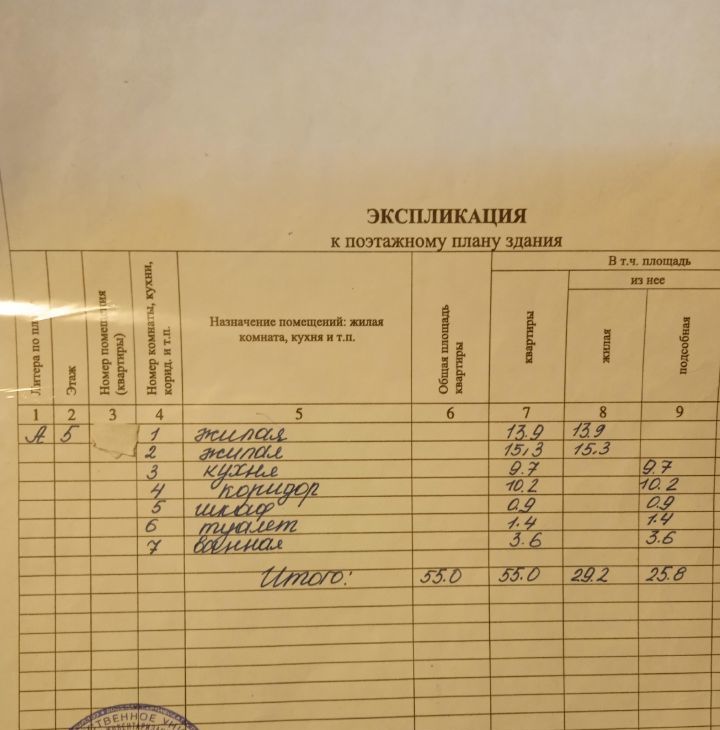 ЭКСПЛИКАЦИЯ
к поэтажному плану здания
Литера по пл
Этаж
Номер помещения (квартиры)
Номер комнаты, кухни, корид. и т.п.
Назначение помещений: жилая
комната, кухня и т.п.
Общая площадь квартиры
В т.ч. площадь
квартиры
из нее
жилая
подсобная
1 2 3 4 5 6 7 8 9
А 5 1 жилая 13.9 13.9
2 жилая 15,3 15.3
3 кухня 9.7 9.7
4 коридор 10.2 10.2
5 шкаф 0.9 0.9
6 туалет 1.4 1.4
7 ванная 3.6 3.6
Итого: 55.0 55.0 29.2 25.8
ТВЕННОЕ УНИ